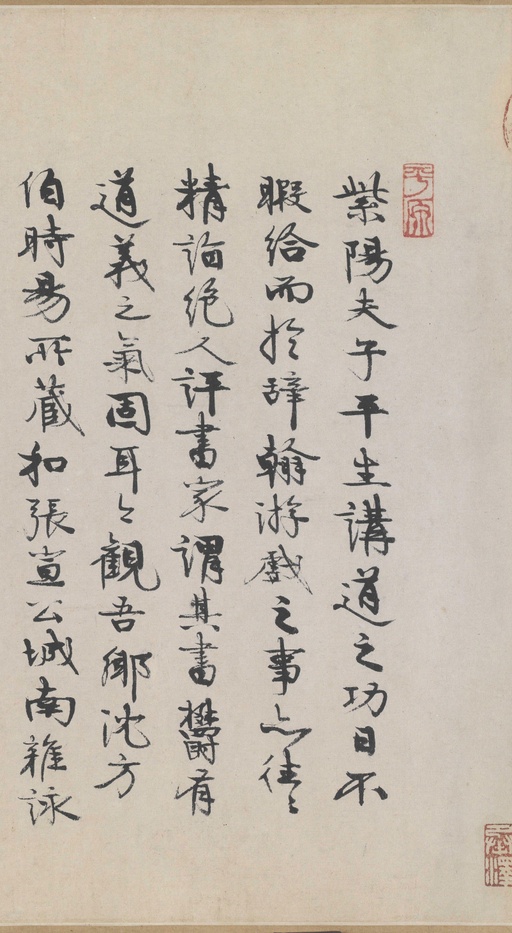 平原
紫陽夫子平生講道之功日不
暇給而於辭翰游戲之事亦往〻
精詣絕人評書家謂其書鬱有
道義之氣固耳今觀吾鄉沈方
伯時易所蔵和張宣公城南雜詠